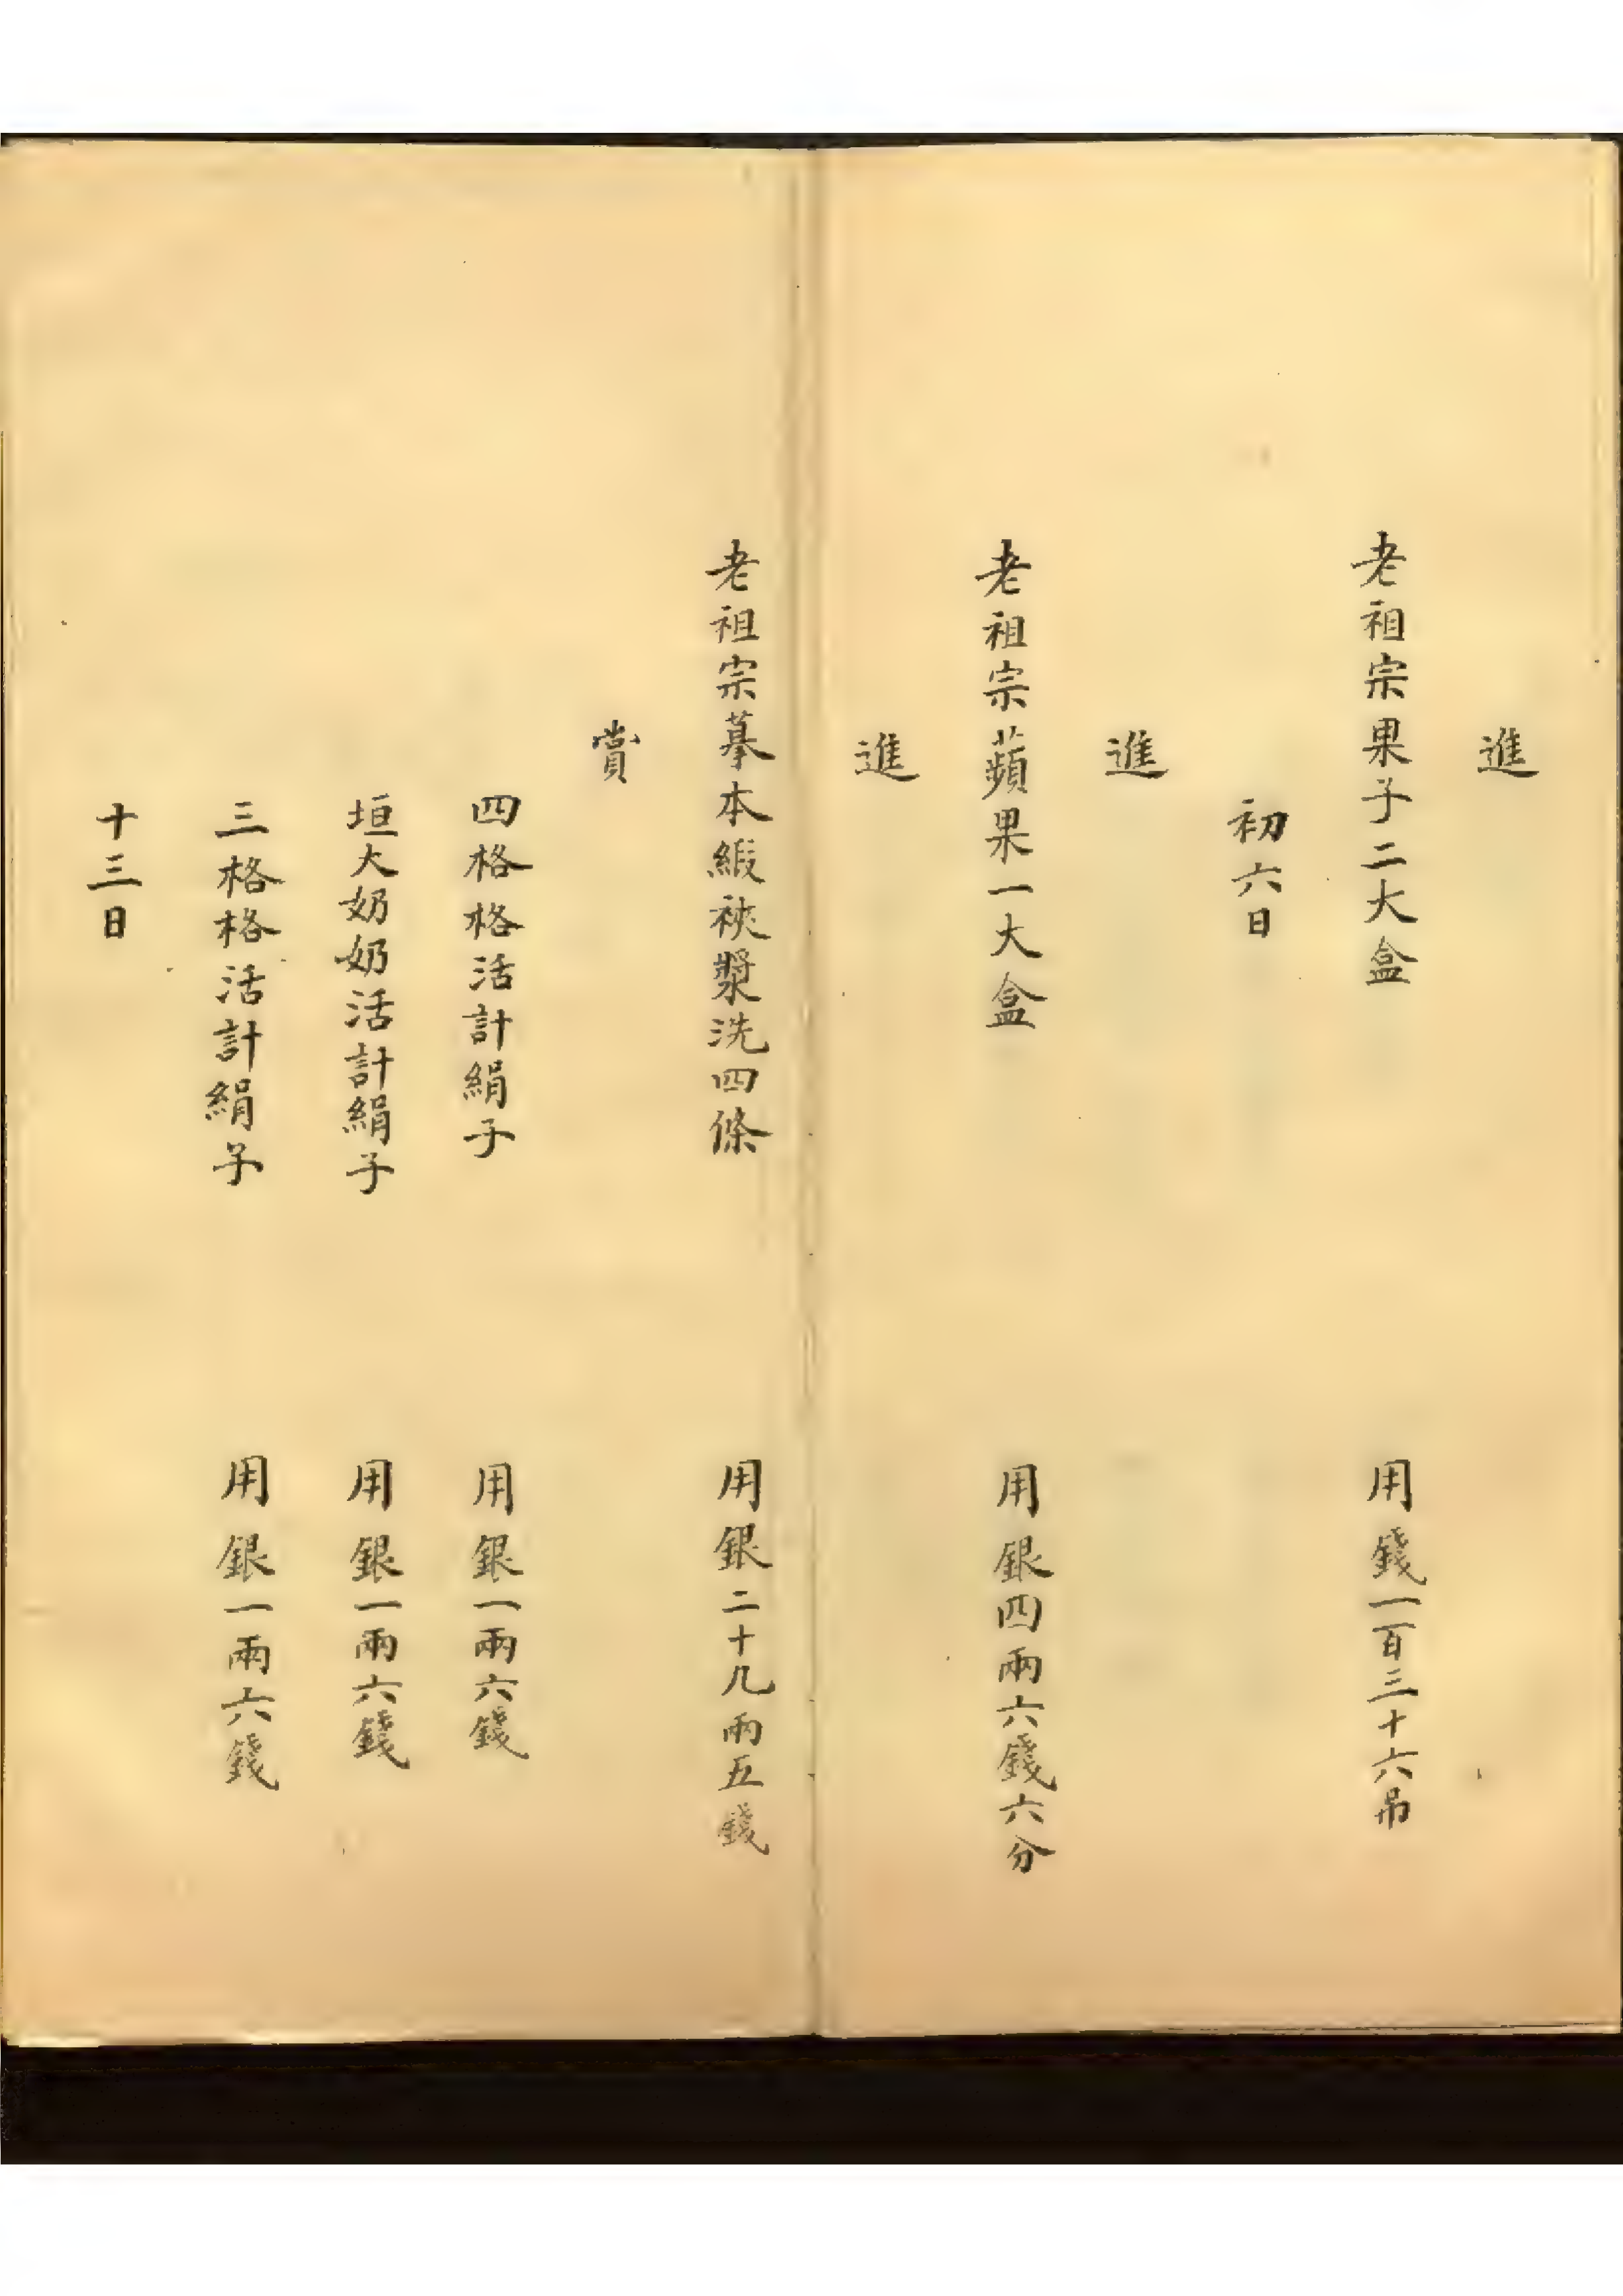 進
老祖宗果子二大盒 用錢一百三十六吊
初六日
進
老祖宗蘋果一大盒 用銀四兩六錢六分
進
老祖宗摹本緞裌漿洗四條 用銀二十九兩五錢
賞
四格格活計絹子 用銀一兩六錢
垣大奶奶活計絹子 用銀一兩六錢
三格格活計絹子 用銀一兩六錢
十三日